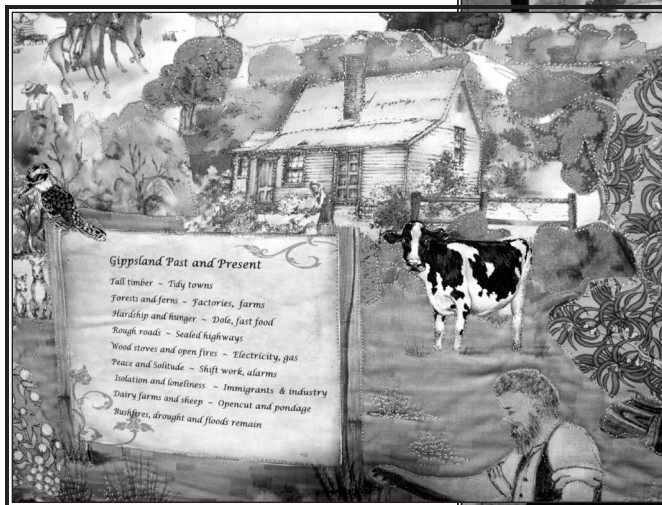 Gippsland Past and Present
Tall timber ~ Tidy towns
Forests and ferns ~ Factories, farms
Hardship and hunger ~ Dole, fast food
Rough roads ~ Sealed highways
Wood stoves and open fires ~ Electricity, gas
Peace and Solitude ~ Shift work, alarms
Isolation and loneliness ~ Immigrants & industry
Dairy farms and sheep ~ Opencut and pondage
Bushfires, drought and floods remain